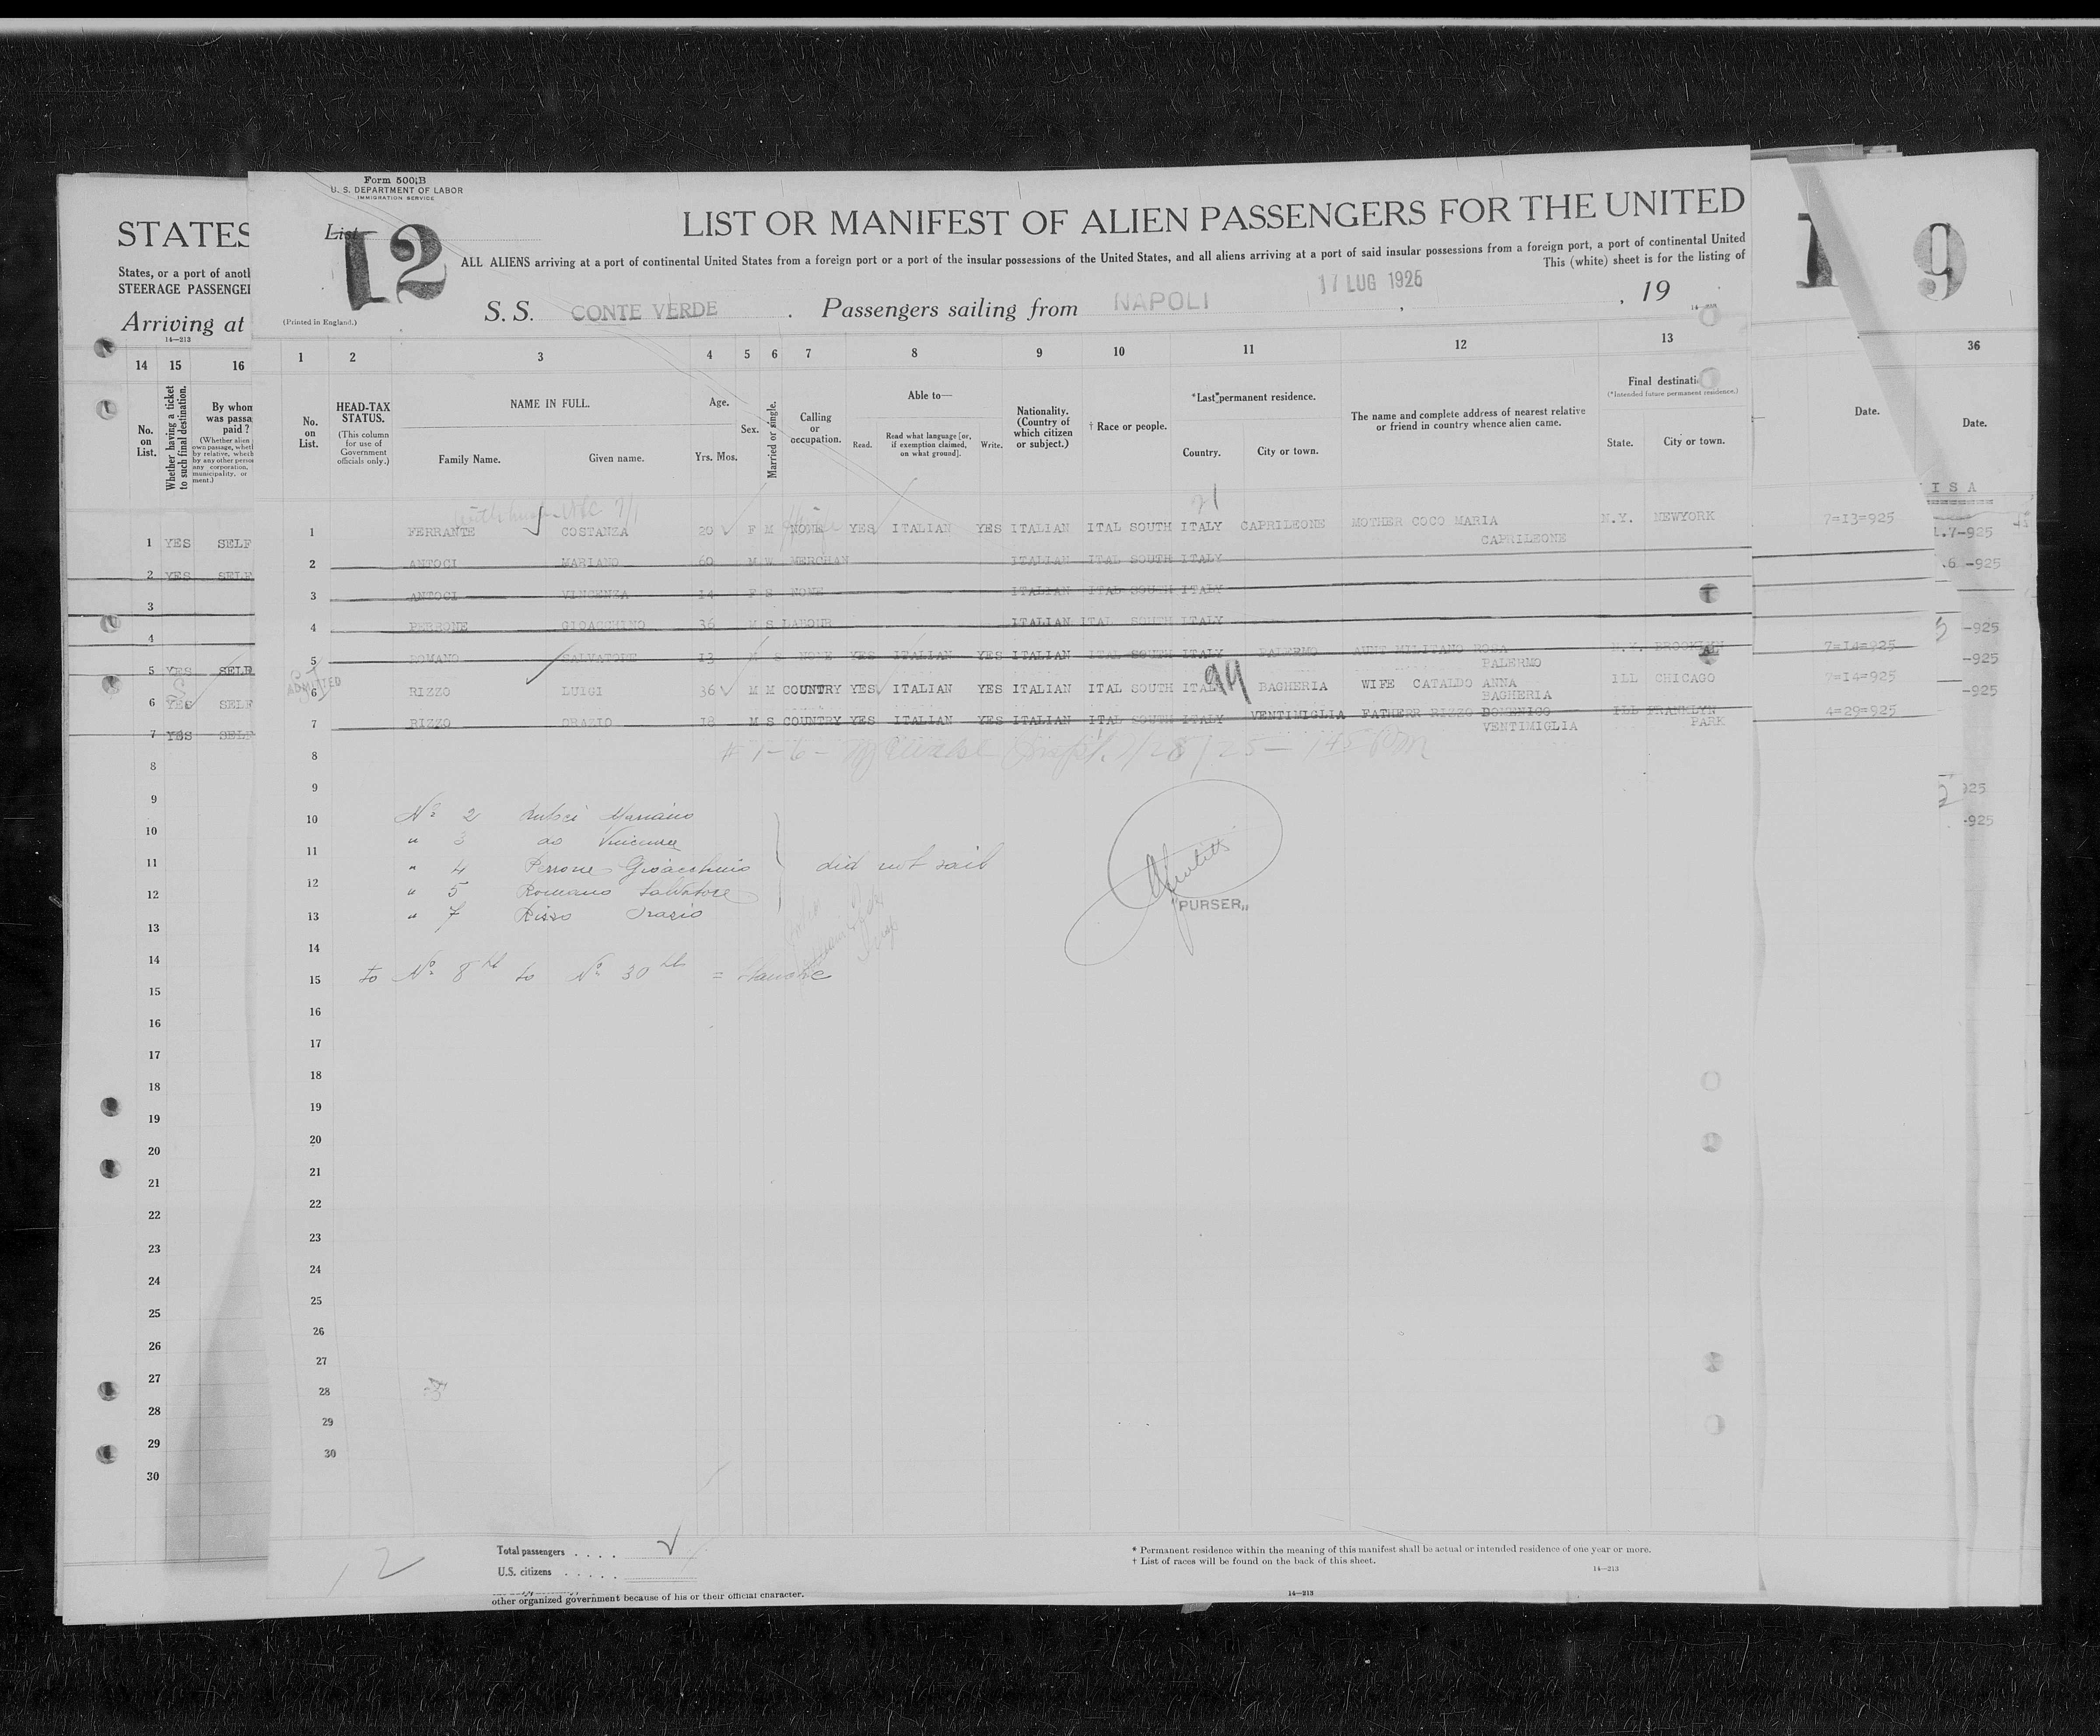 Form 500 B
U. S. DEPARTMENT OF LABOR
IMMIGRATION SERVICE
List 12
LIST OR MANIFEST OF ALIEN PASSENGERS FOR THE UNITED
ALL ALIENS arriving at a port of continental United States from a foreign port or a port of the insular possessions of the United States, and all aliens arriving at a port of said insular possessions from a foreign port, a port of continental United
This (white) sheet is for the listing of
(Printed in England.)
S. S. CONTE VERDE . Passengers sailing from NAPOLI , 17 LUG 1925 , 19
STATES
States, or a port of anotl
STEERAGE PASSENGEI
Arriving at
14—213
9
14 15 16
No. on List.
Whether having a ticket to such final destination.
By whom was passa paid ?
1 2 3 4 5 6 7 8 9 10 11 12 13
36
No. on List.
HEAD-TAX STATUS.
(This column for use of Government officials only.)
NAME IN FULL.
Family Name. Given name.
Age.
Yrs. Mos.
Sex.
Married or single.
Calling or occupation.
Able to—
Read. Read what language [or, if exemption claimed, on what ground]. Write.
Nationality. (Country of which citizen or subject.)
† Race or people.
*Last permanent residence.
Country. City or town.
The name and complete address of nearest relative or friend in country whence alien came.
Final destinati
(*Intended future permanent residence.)
State. City or town.
Date.
Date.
I S A
21
1 YES SELF 1 FERRANTE COSTANZA 20 F M NONE YES ITALIAN YES ITALIAN ITAL SOUTH ITALY CAPRILEONE MOTHER COCO MARIA N.Y. NEWYORK 7=I3=925 .7-925
CAPRILEONE
2 YES SELF 2 ANTOCI MARIANO 60 M W MERCHAN ITALIAN ITAL SOUTH ITALY .6 -925
3 3 ANTOCI VINCENZA 14 F S NONE ITALIAN ITAL SOUTH ITALY
4 4 PERRONE GIOACCHINO 36 M S LABOUR ITALIAN ITAL SOUTH ITALY -925
5 YES SELF 5 ROMANO SALVATORE I3 M S NONE YES ITALIAN YES ITALIAN ITAL SOUTH ITALY PALERMO AUNT MILITANO ROSA N.Y. BROOKLYN 7=I4=925 -925
PALERMO
ADMITTED
6 YES SELF 6 RIZZO LUIGI 36 M M COUNTRY YES ITALIAN YES ITALIAN ITAL SOUTH ITALY 99 BAGHERIA WIFE CATALDO ANNA ILL CHICAGO 7=I4=925 -925
BAGHERIA
7 YES SELF 7 RIZZO ORAZIO I8 M S COUNTRY YES ITALIAN YES ITALIAN ITAL SOUTH ITALY VENTIMIGLIA FATHERR RIZZO DOMENICO ILL FRANKLYN 4=29=925
VENTIMIGLIA PARK
8 8
9 9 925
10 10 Nº 2 Antoci Mariano -925
" 3 do Vincenza
11 11 " 4 Perrone Gioacchino did not sail
12 12 " 5 Romano Salvatore
13 13 " 7 Rizzo Orazio
"PURSER„
14 14
15 15 to Nº 8th to Nº 30th =
16 16
17 17
18 18
19 19
20 20
21 21
22 22
23 23
24 24
25 25
26 26
27 27
28 28
29 29
30 30
12
Total passengers . . . .
U.S. citizens . . . . .
* Permanent residence within the meaning of this manifest shall be actual or intended residence of one year or more.
† List of races will be found on the back of this sheet.
14—213
other organized government because of his or their official character.
14—213